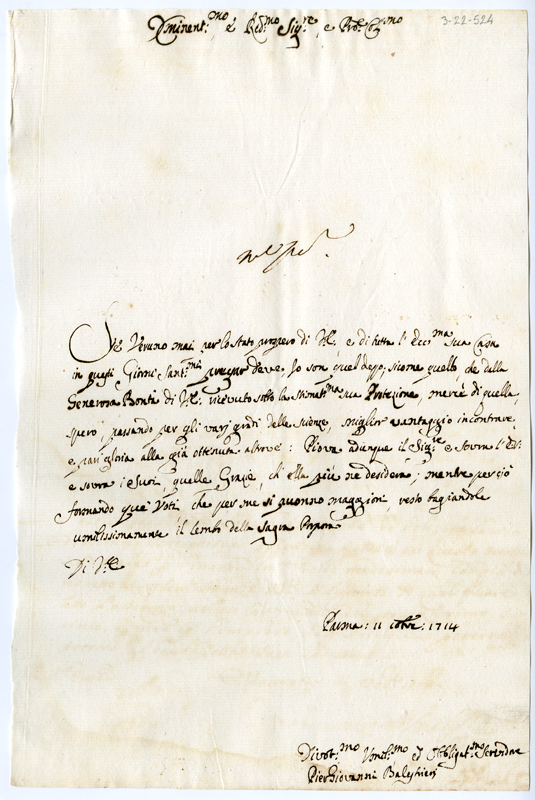 3-22-524
Eminent.mo é Red.mo Sig.re, e Pro.
Se Veruno mai per lo stato prospero di V.E., e di tutta l'Ecc.ma sua Casa
in questi Giorni Sant.mi pregar deve, Io son quel desso, sicome quello, che dalla
Generosa Bontà di V.E. ricevuto sotto la stimat.ma sua Protezione, mercè di quella,
spero, passando per gli varj gradi delle scienze, miglior vantaggio incontrare,
e pari gloria alla già ottenuta altrove: Piova adunque il Sig.re e sovra l'E.V.
e sovra i Suoi, quelle Grazie, ch'ella più ne desidera; mentre perciò
formando que' Voti, che per me si puonno maggiori, resto bagiandole
umilissimamente il lembo della Sagra Porpora
Di V.E.
Parma: 11 : 1714
Divot.mo Umil.mo Obligat.mo Servidore
Pier Giovanni Balestrieri